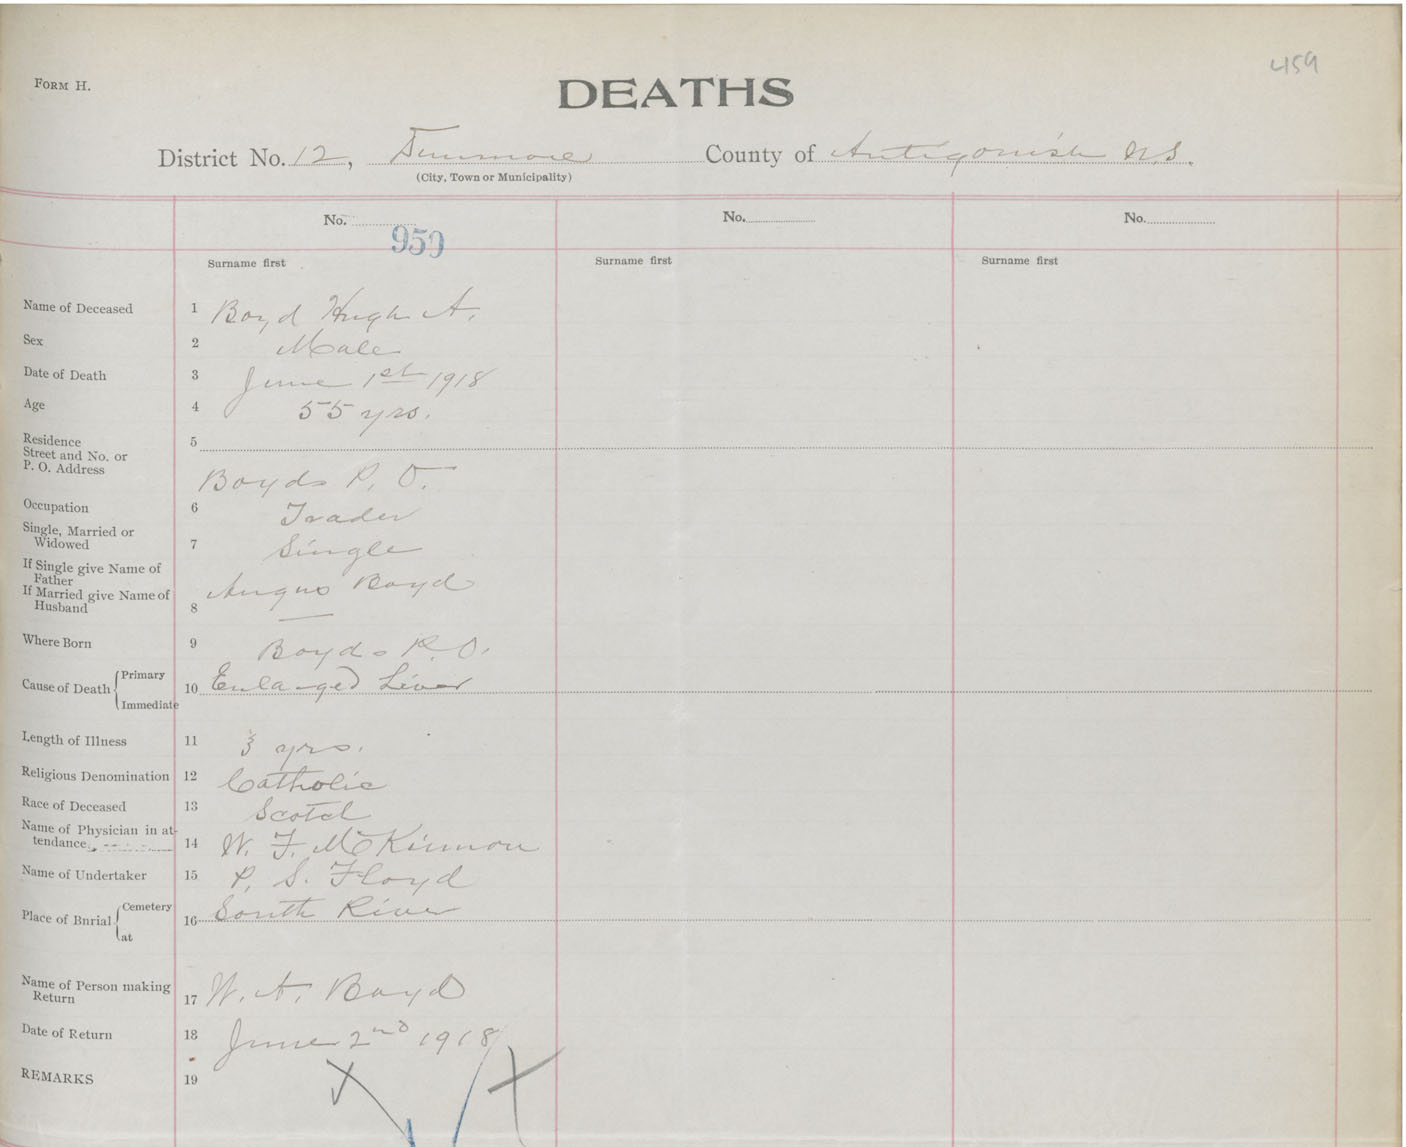 459
FORM H.
DEATHS
District No. 12, Dunmore County of Antigonish N.S.
(City, Town or Municipality)
No. No. No.
959
Surname first Surname first Surname first
Name of Deceased 1 Boyd Hugh A.
Sex 2 Male
Date of Death 3 June 1st 1918
Age 4 55 yrs.
Residence 5
Street and No. or
P. O. Address
Boyds P. O.
Occupation 6 Trader
Single, Married or
Widowed 7 Single
If Single give Name of
Father Angus Boyd
If Married give Name of
Husband 8 —
Where Born 9 Boyds P.O.
Cause of Death Primary
10 Enlarged Liver
Immediate
Length of Illness 11 3 yrs.
Religious Denomination 12 Catholic
Race of Deceased 13 Scotch
Name of Physician in at-
tendance 14 W. F. McKinnon
Name of Undertaker 15 P. S. Floyd
Place of Bnrial Cemetery
16 South River
at
Name of Person making
Return 17 W. A. Boyd
Date of Return 18 June 2nd 1918
REMARKS 19